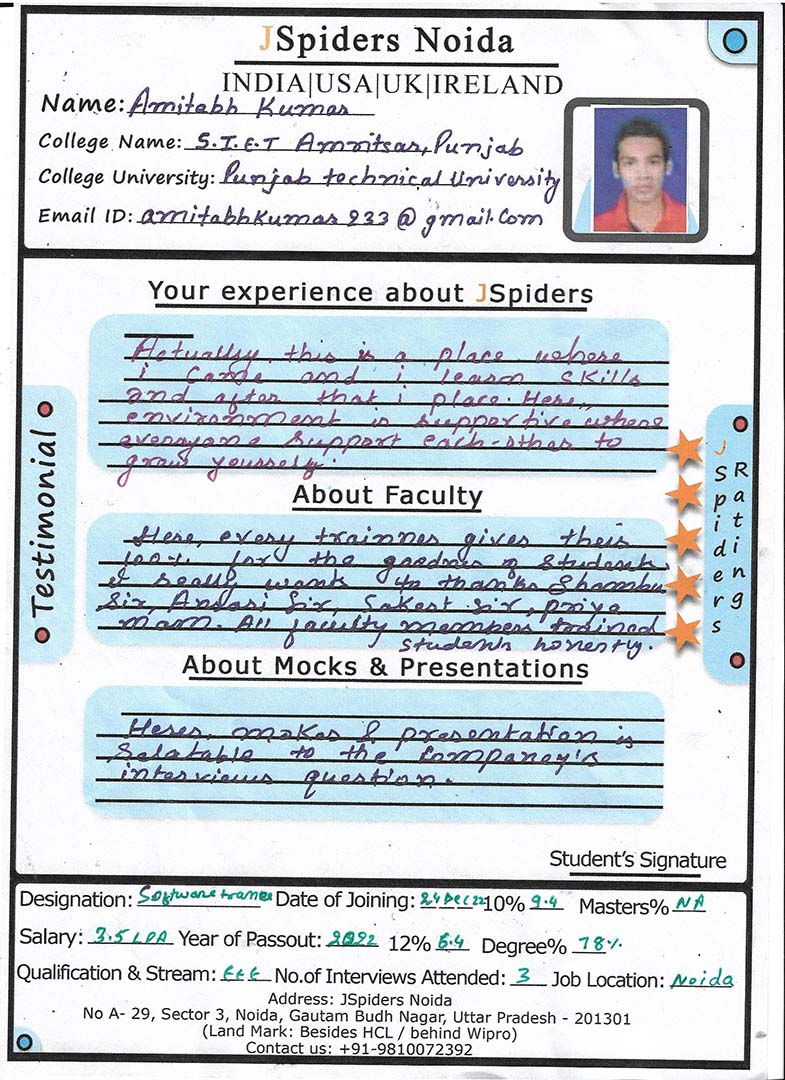 JSpiders Noida
INDIA|USA|UK|IRELAND
Name: Amitabh Kumar
College Name: S.I.E.T Amritsar, Punjab
College University: Punjab technical University
Email ID: amitabhkumar233@gmail.com
Your experience about JSpiders
Actually, this is a place where
i came and i learn skills
and after that i place. Here,
environment is supportive where
everyone support each-other to
grow yourself.
About Faculty
Here, every trainner gives their
100% for the goodness of students
I really want to thanks Shambu
Sir, Ansari Sir, Saket sir, priya
mam. All faculty members trained
students honestly.
About Mocks & Presentations
Heres, makes & presentation is
relatable to the company's
interviews question.
Testimonial
JSpiders
Rating
Student's Signature
Designation: Software trainee Date of Joining: 24 Dec 22 10% 9.4 Masters% NA
Salary: 3.5 LPA Year of Passout: 2022 12% 6.4 Degree% 78%
Qualification & Stream: EEE No.of Interviews Attended: 3 Job Location: Noida
Address: JSpiders Noida
No A- 29, Sector 3, Noida, Gautam Budh Nagar, Uttar Pradesh - 201301
(Land Mark: Besides HCL / behind Wipro)
Contact us: +91-9810072392